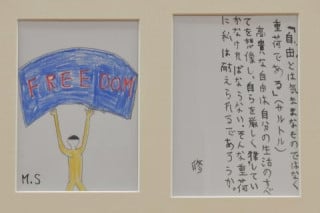 FREEDOM
M.S
「自由とは気ままなものではなく
重荷である」(サルトル)
高貴な自由は自分の生活のすべ
てを想像し、自らを厳しく律してい
かなければならない。そんな重荷
に私は耐えられるであろうか。
修